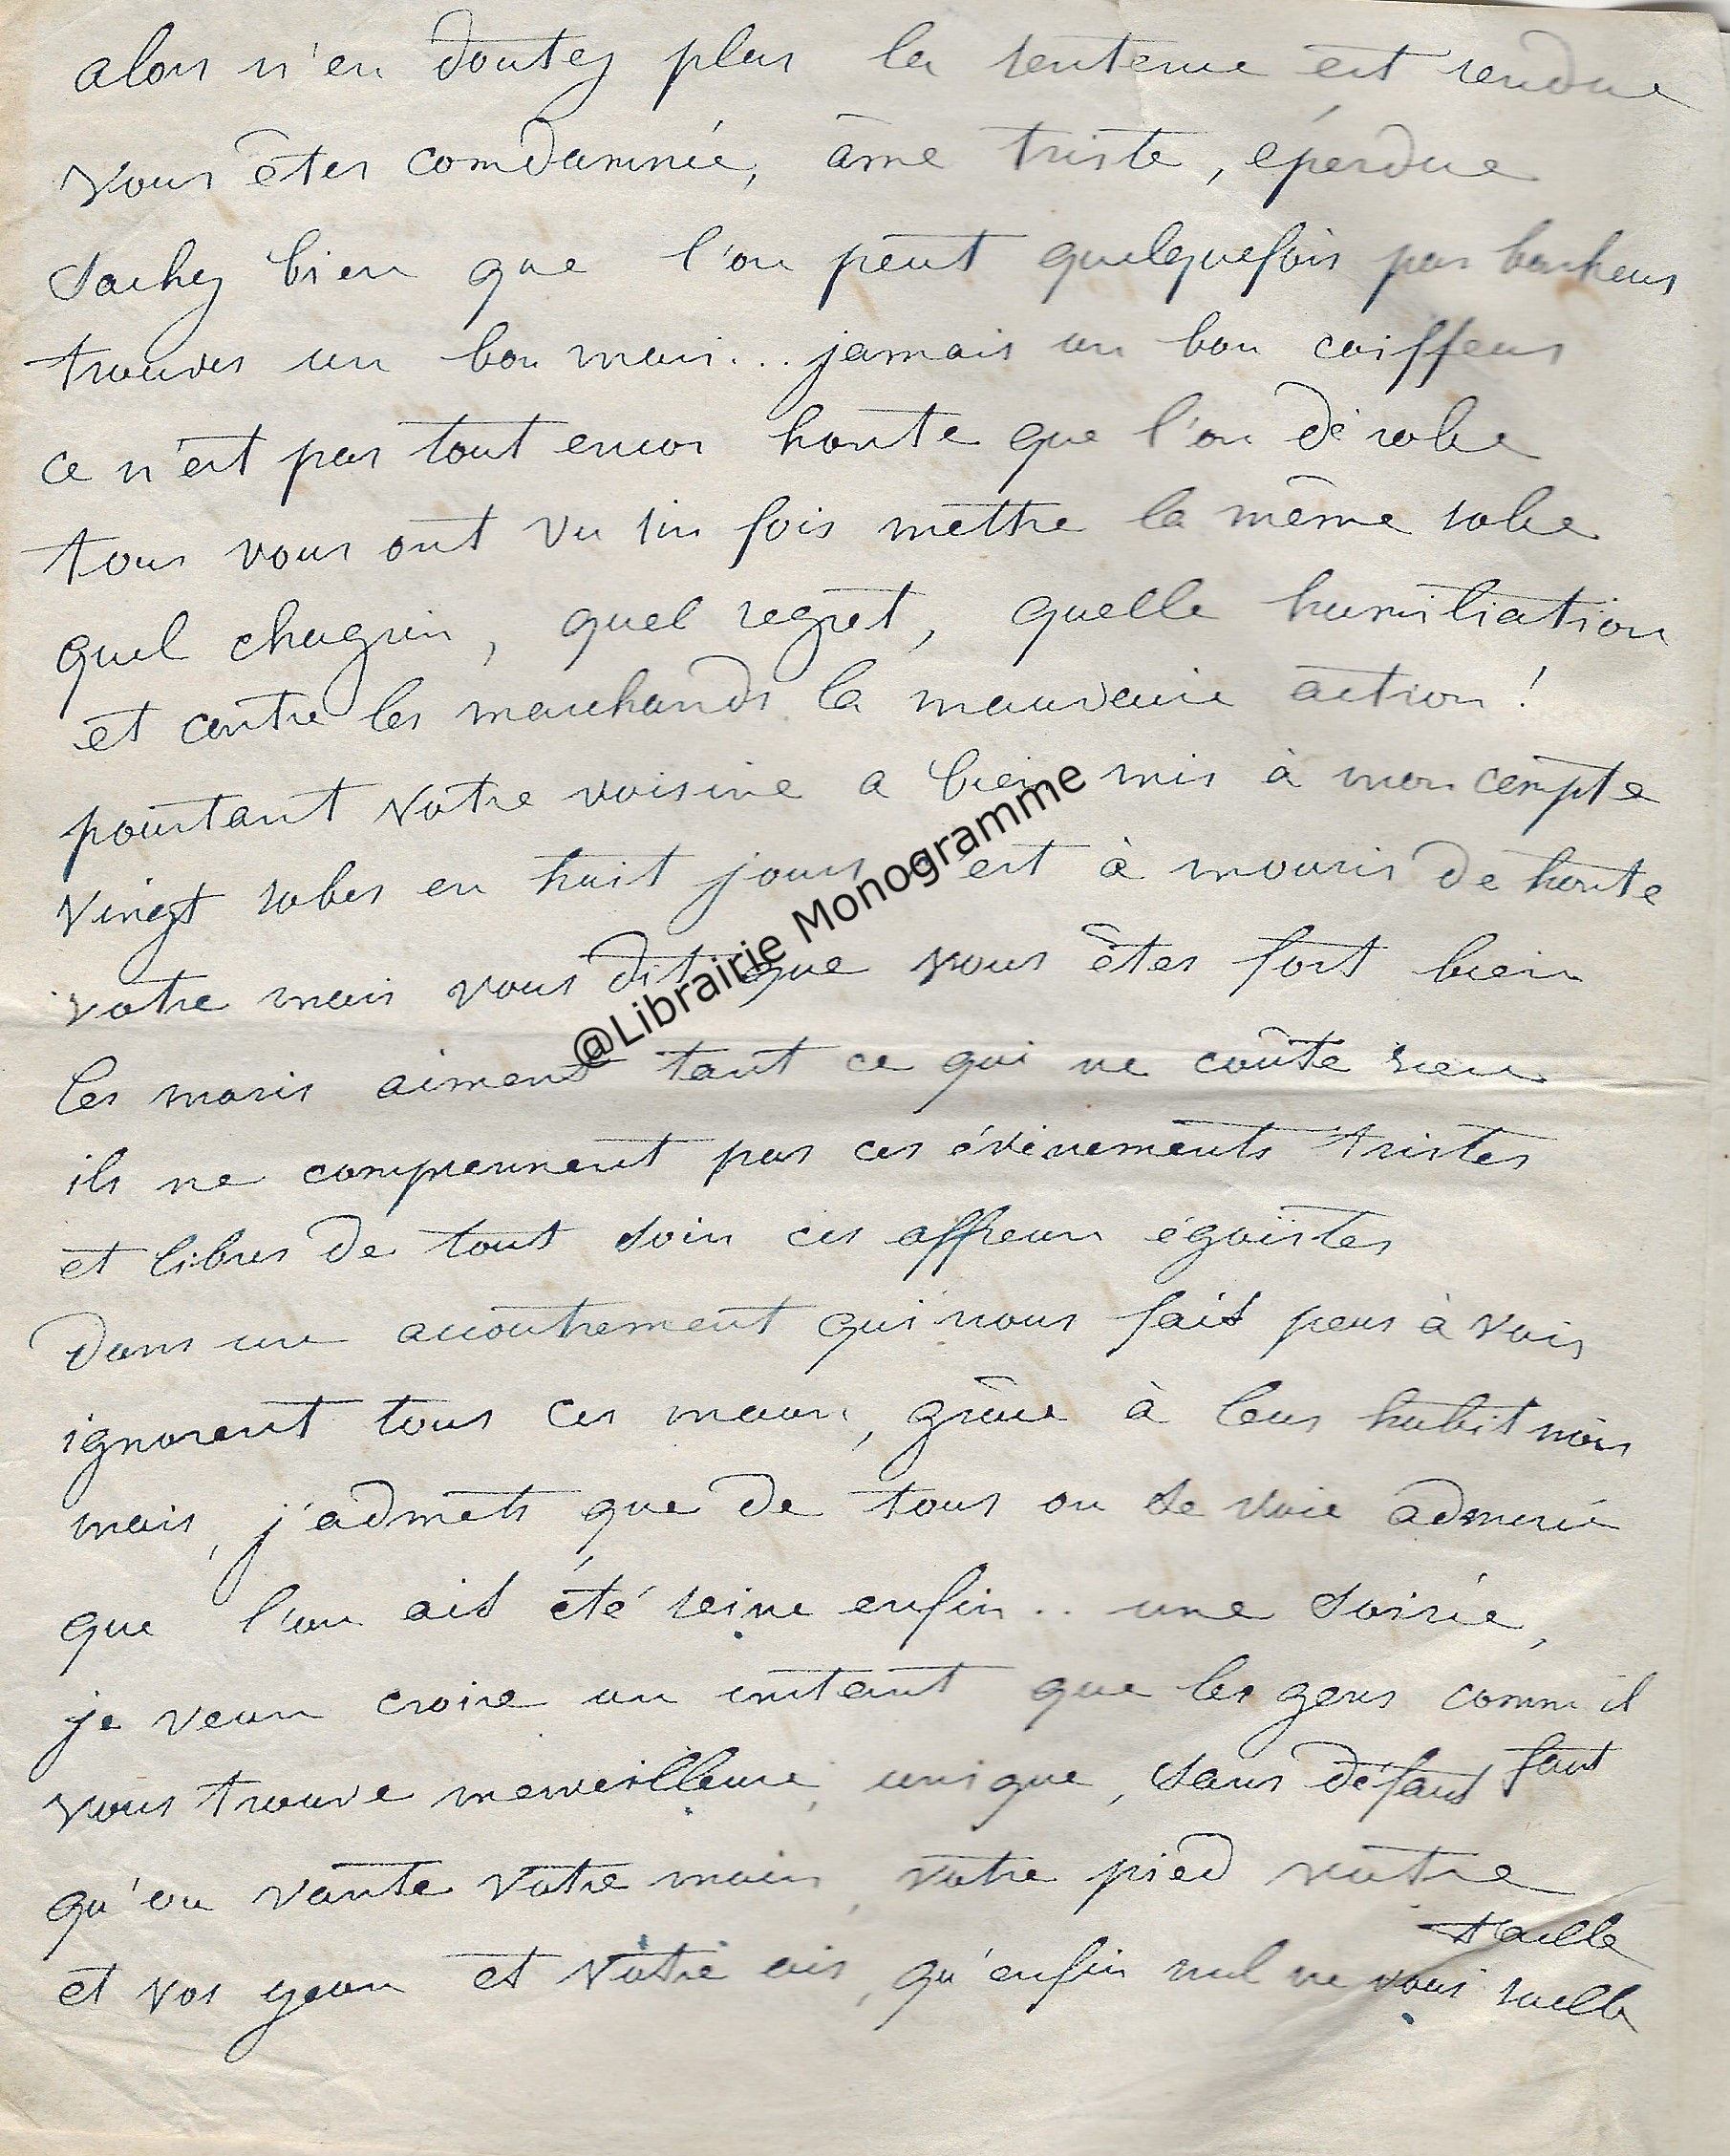 alors n'en doutez plus la sentence est rendue
vous êtes comdamnée, âme triste, éperdue
Sachez bien que l'on peut quelquefois par bonheur
trouver un bon mari... jamais un bon coiffeur
ce n'est pas tout encor honte que l'on dérobe
tous vous ont vu six fois mettre la même robe
quel chagrin, quel regret, quelle humiliation
et contre les marchands la mauvaise action !
pourtant votre voisine a bien mis à mon compte
vingt robes en huit jours c'est à mourir de honte
votre mari vous dit que vous êtes fort bien
les maris aiment tant ce qui ne coûte rien
ils ne comprennent pas ces évènements tristes
et libres de tout soin ces affreux égoïstes
Dans un accoutrement qui nous fait peur à voir
ignorent tous ces maux, grâce à leur habit noir
mais, j'admets que de tous on se voie admirée
que l'on ait été reine enfin.. une soirée,
je veux croire un instant que les gens comm il
faut
vous trouve merveilleuse, unique, sans défaut
qu'on vante votre main, votre pied votre
taille
et vos yeux et votre air, qu'enfin nul ne vous raille
@Librairie Monogramme